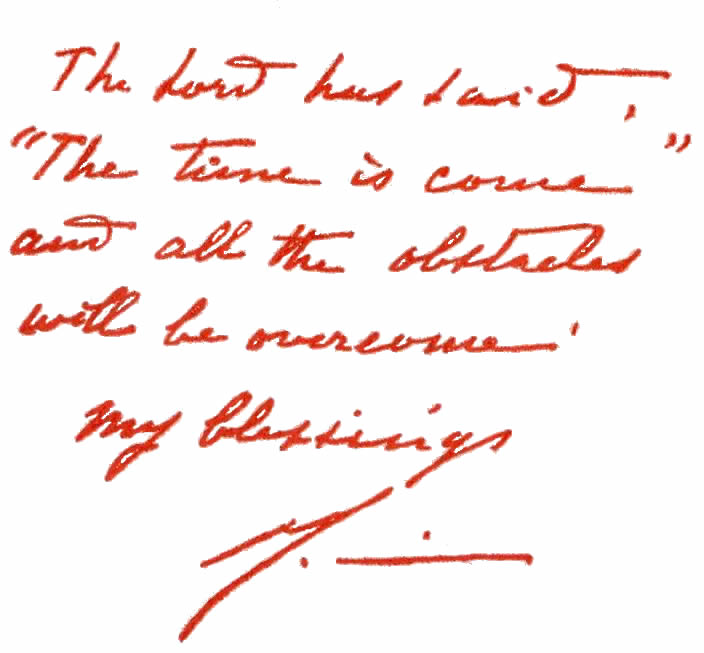 The Lord has said,
"The time is come"
and all the obstacles
will be overcome.
My blessings